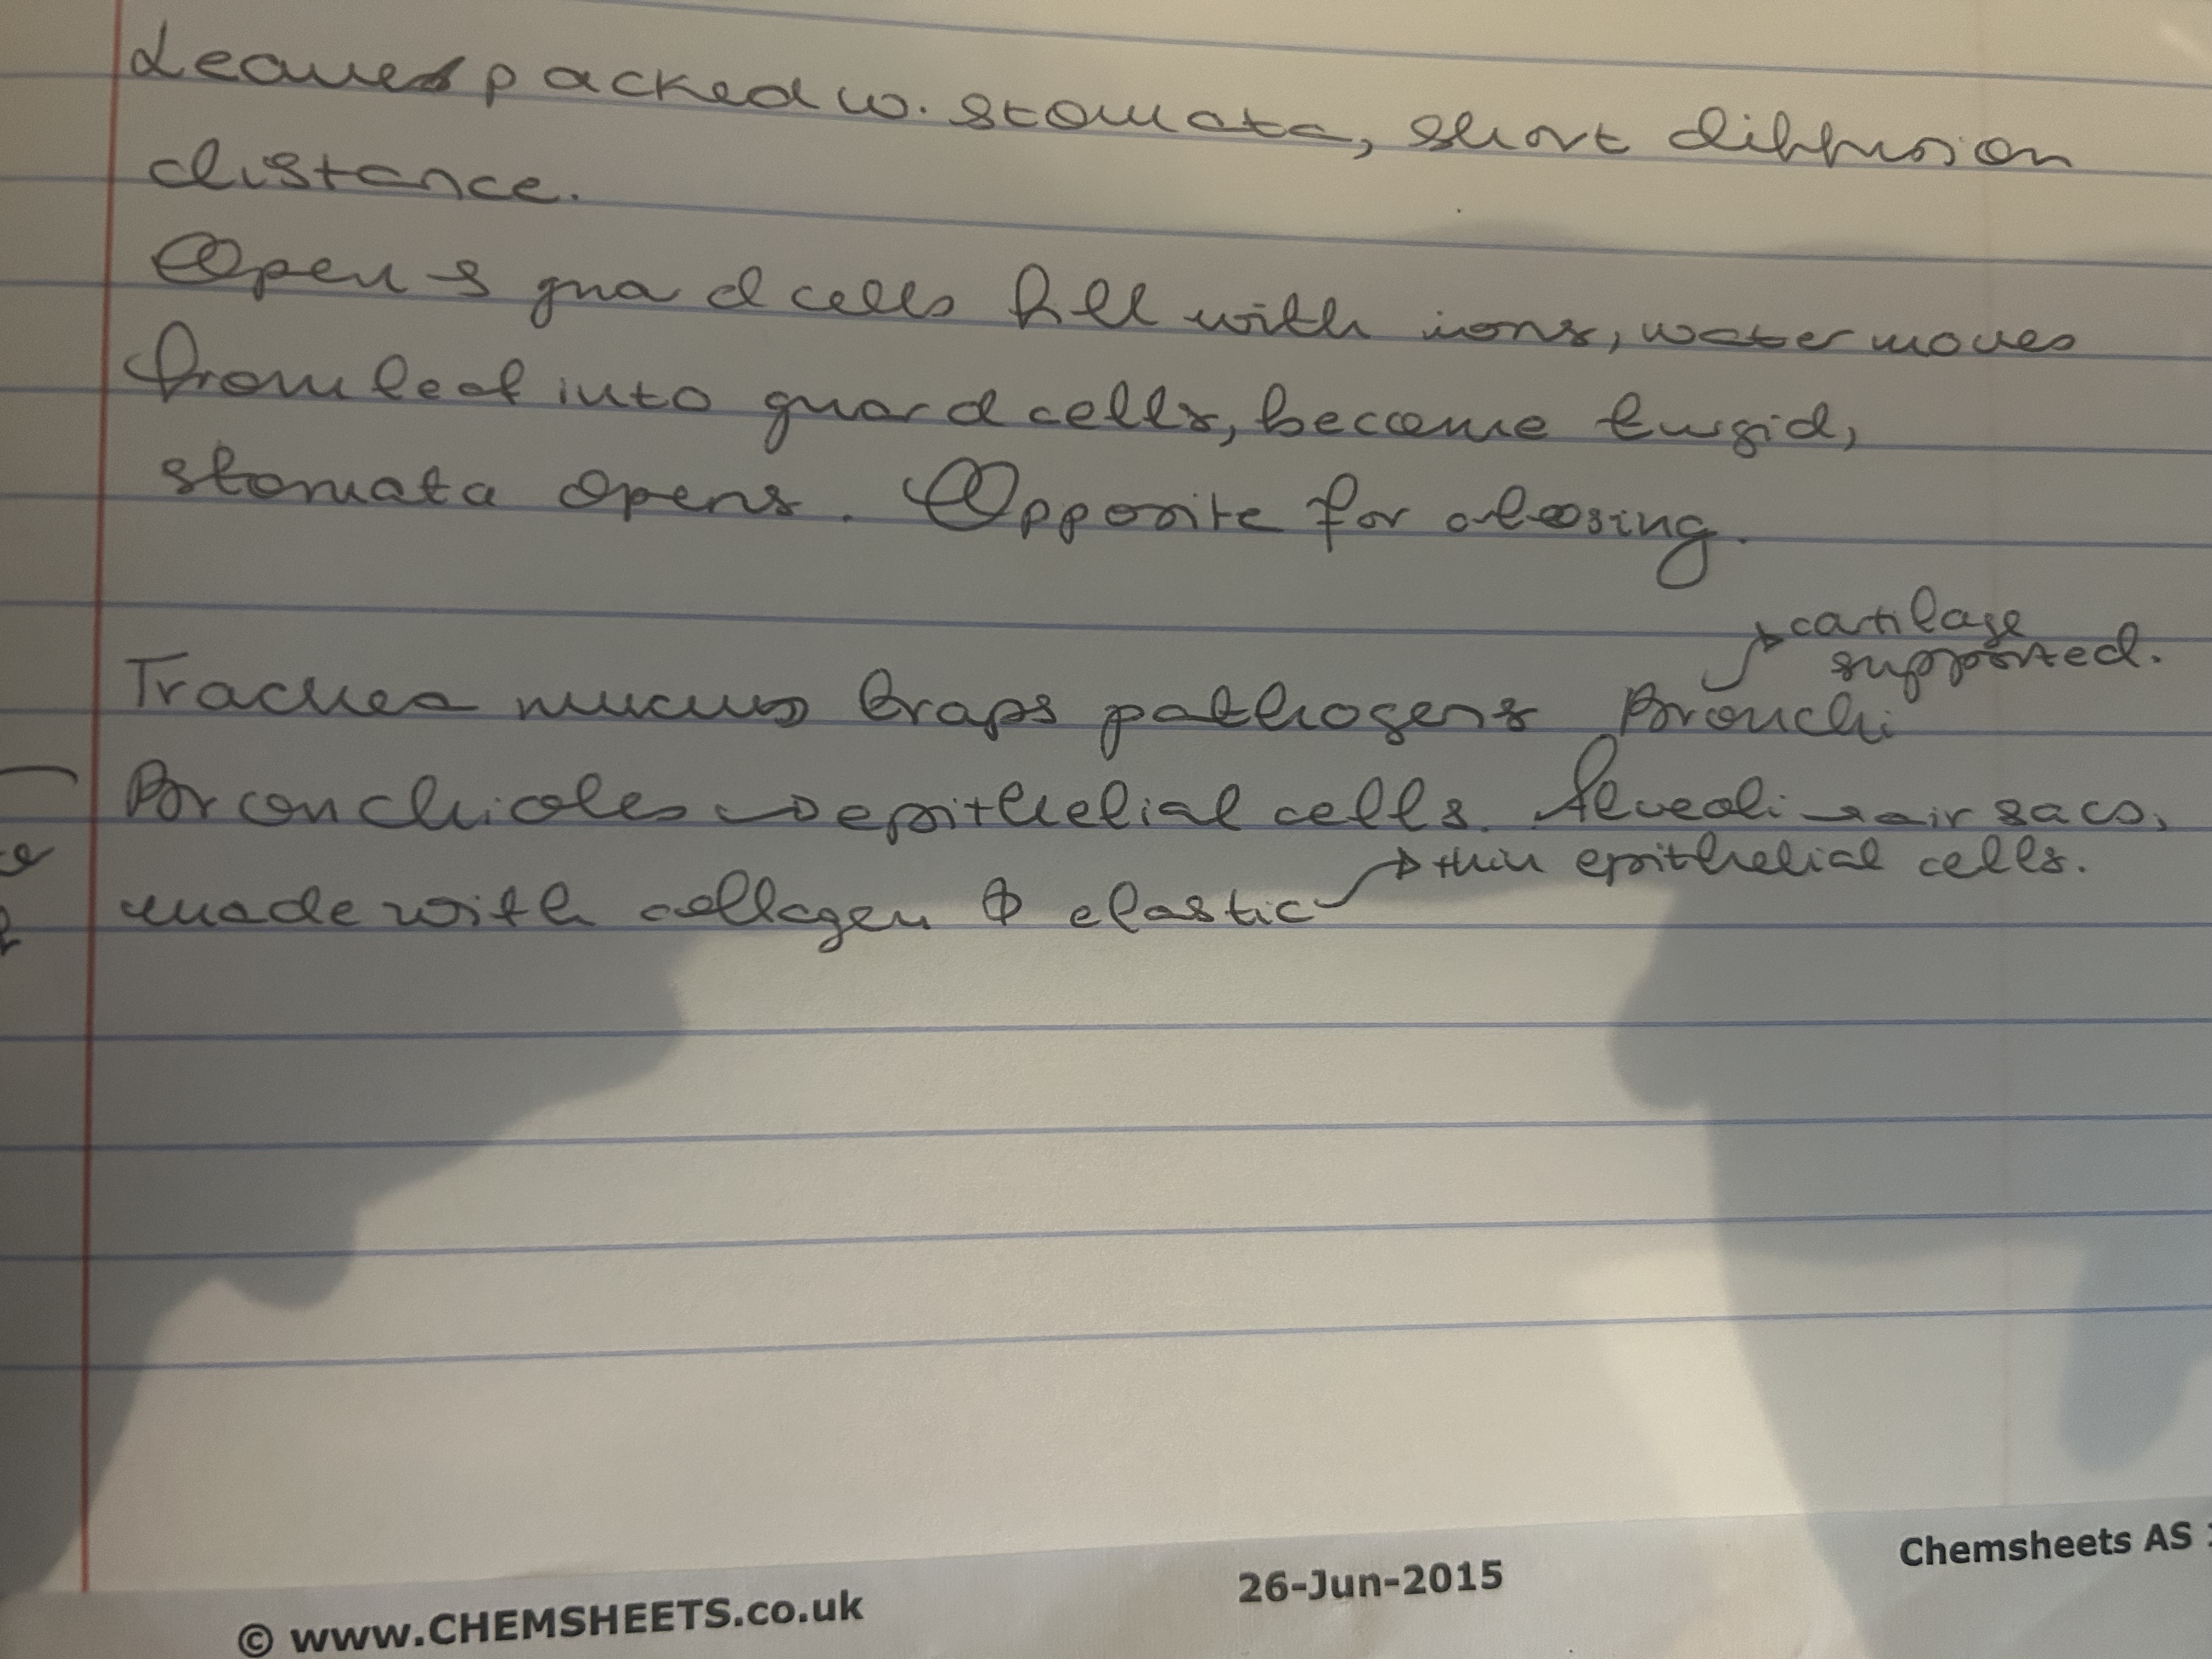 Leaves packed w. stomata, short diffusion
distance.
Open → guad cells fill with ions, water moves
from leaf into guard cells, become turgid,
stomata opens. Opposite for closing.
cartilage
supported.
Trachea mucus traps pathogens Bronchi
Bronchioles → epithelial cells. Alveoli → air sacs,
thin epithelial cells.
made with collagen & elastic
© www.CHEMSHEETS.co.uk
26-Jun-2015
Chemsheets AS